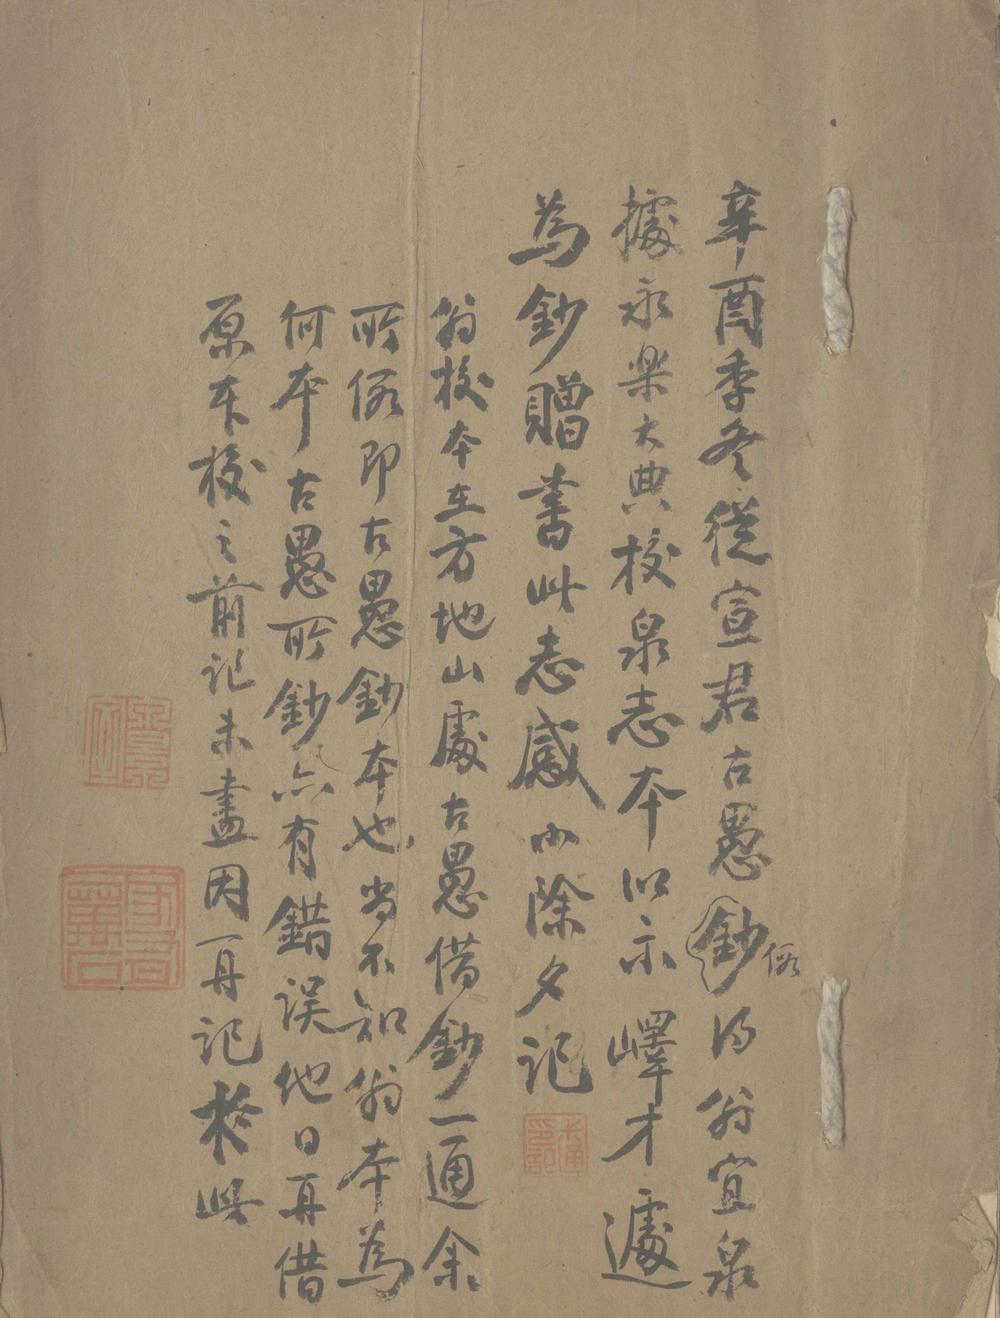 辛酉季冬從宣君古愚鈔得翁宜泉
假
據永樂大典校泉志本以示嶧才遽
為鈔贈書此志感小除夕記
翁校本在方地山處古愚借鈔一通余
所假即古愚鈔本也尚不知翁本為
何本古愚所鈔亦有錯誤他日再借
原本校之前記未盡因再記於此